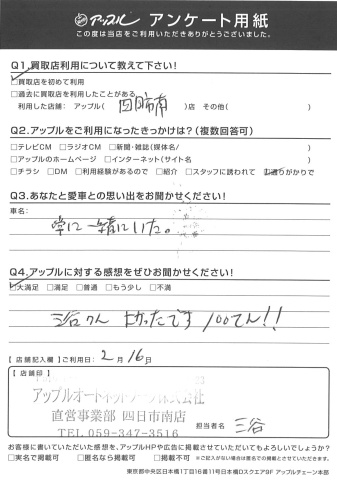 アップル アンケート用紙
この度は当店をご利用いただきありがとうございました。
Q1.買取店利用について教えて下さい!
☑買取店を初めて利用
□過去に買取店を利用したことがある
利用した店舗: アップル( 四日市南 )店 その他( )
Q2.アップルをご利用になったきっかけは?(複数回答可)
□テレビCM □ラジオCM □新聞・雑誌(媒体名/ )
□アップルのホームページ □インターネット(サイト名 )
□チラシ □DM □利用経験があるので □紹介 □スタッフに誘われて ☑通りがかりで
Q3.あなたと愛車との思い出をお聞かせください!
車名:
常に一緒にいた。
Q4.アップルに対する感想をぜひお聞かせください!
☑大満足 □満足 □普通 □もう少し □不満
三谷さん よかったです 100てん!!
【店舗記入欄】ご利用日: 2月16日
【店舗印】
アップルオートネットワーク株式会社
直営事業部 四日市南店
TEL 059-347-3516
担当者名 三谷
お客様に書いていただいた感想を、アップルHPや広告に掲載させていただいてもよろしいでしょうか?
□実名で掲載可 □匿名なら掲載可 □掲載不可 ※ご記入がない場合は匿名での掲載とさせていただきます。
東京都中央区日本橋1丁目16番11号日本橋Dスクエア9F アップルチェーン本部